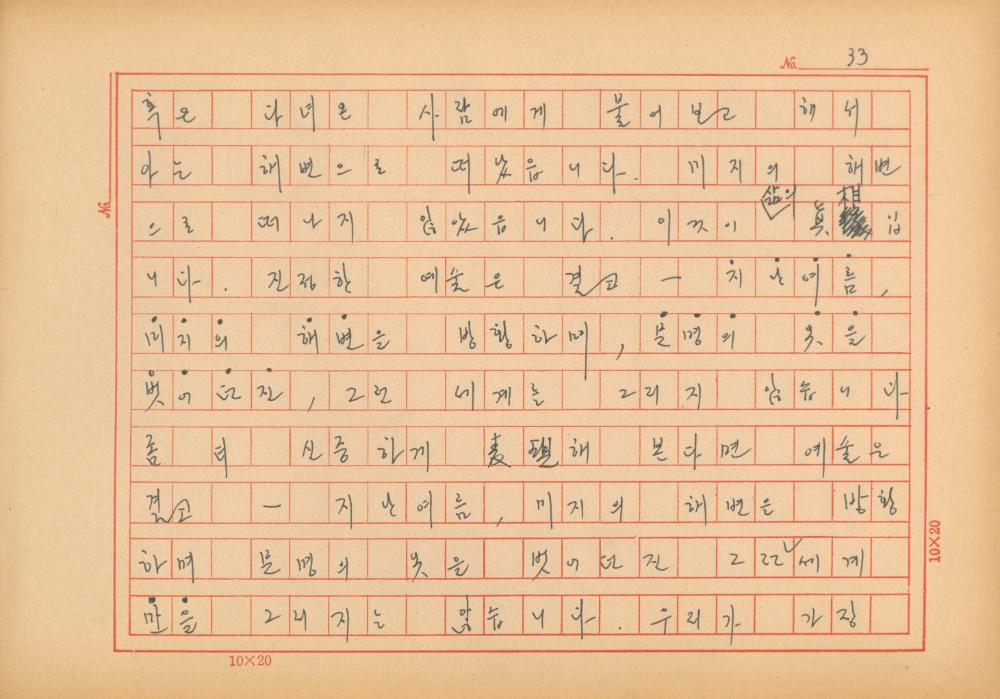 No. 33
혹은 다녀온 사람에게 물어보고 해서
아는 해변으로 떠났읍니다. 미지의 해변
으로 떠나지 않았읍니다. 이것이 삶의 眞相입
니다. 진정한 예술은 결코 — 지난여름,
미지의 해변을 방황하며, 문명의 옷을
벗어던진, 그런 세계를 그리지 않습니다
좀 더 신중하게 表現해 본다면 예술은
결코 — 지난여름, 미지의 해변을 방황
하며 문명의 옷을 벗어던진 그런 세계
만을 그리지는 않습니다. 우리가 가장
No.
10×20
10×20